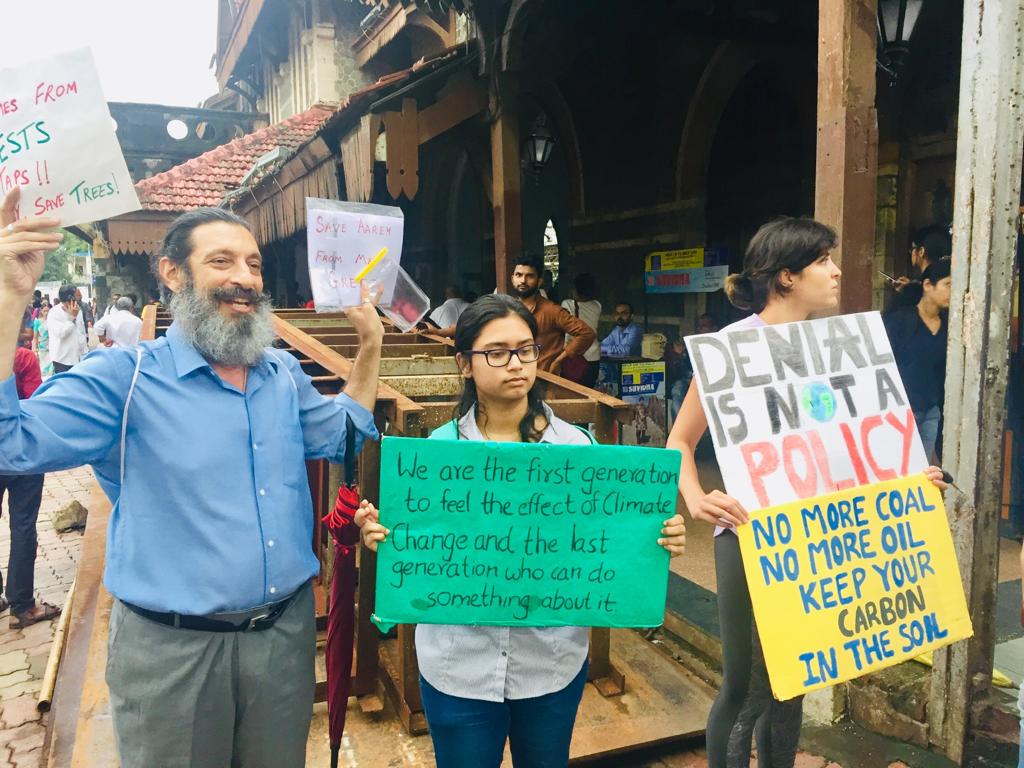 FROM
TAPS!!
SAVE TREES!
SAVE AAREY
FROM
We are the first generation
to feel the effect of Climate
Change and the last
generation who can do
something about it.
DENIAL
IS NOT A
POLICY
NO MORE COAL
NO MORE OIL
KEEP YOUR
CARBON
IN THE SOIL
SUVIDHA